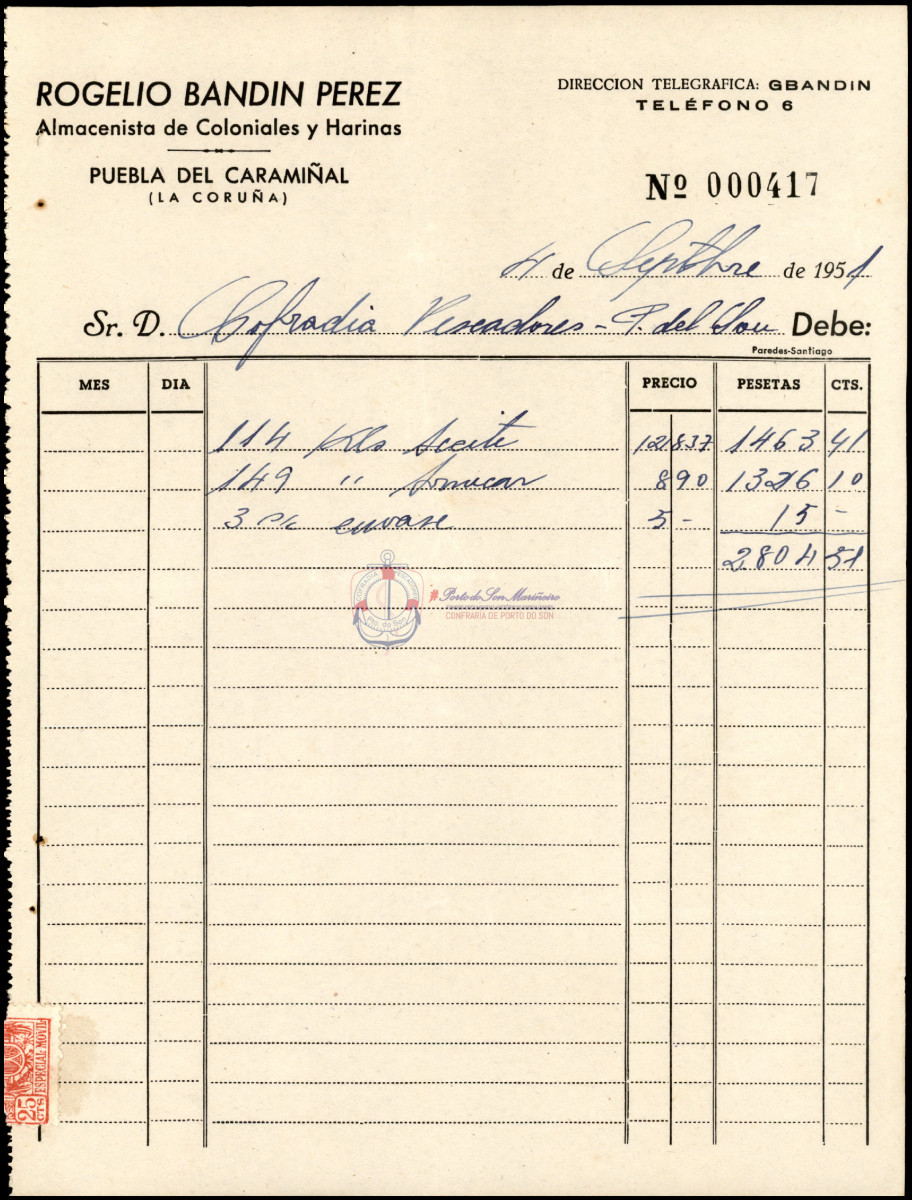 ROGELIO BANDIN PEREZ
Almacenista de Coloniales y Harinas
PUEBLA DEL CARAMIÑAL
(LA CORUÑA)
DIRECCION TELEGRAFICA: GBANDIN
TELÉFONO 6
Nº 000417
4 de Septbre de 1951
Sr. D. Cofradia Pescadores - P. del Son Debe:
Paredes-Santiago
MES DIA PRECIO PESETAS CTS.
114 Klo Aceite 12837 1463 41
149 " 890 1326 10
3 o/c envase 5 - 15 -
2804 51
COFRADIA PESCADORES
Pto. do Son
#Porto do Son Mariñeiro
CONFRARIA DE PORTO DO SON
25 CTS ESPECIAL MOVIL